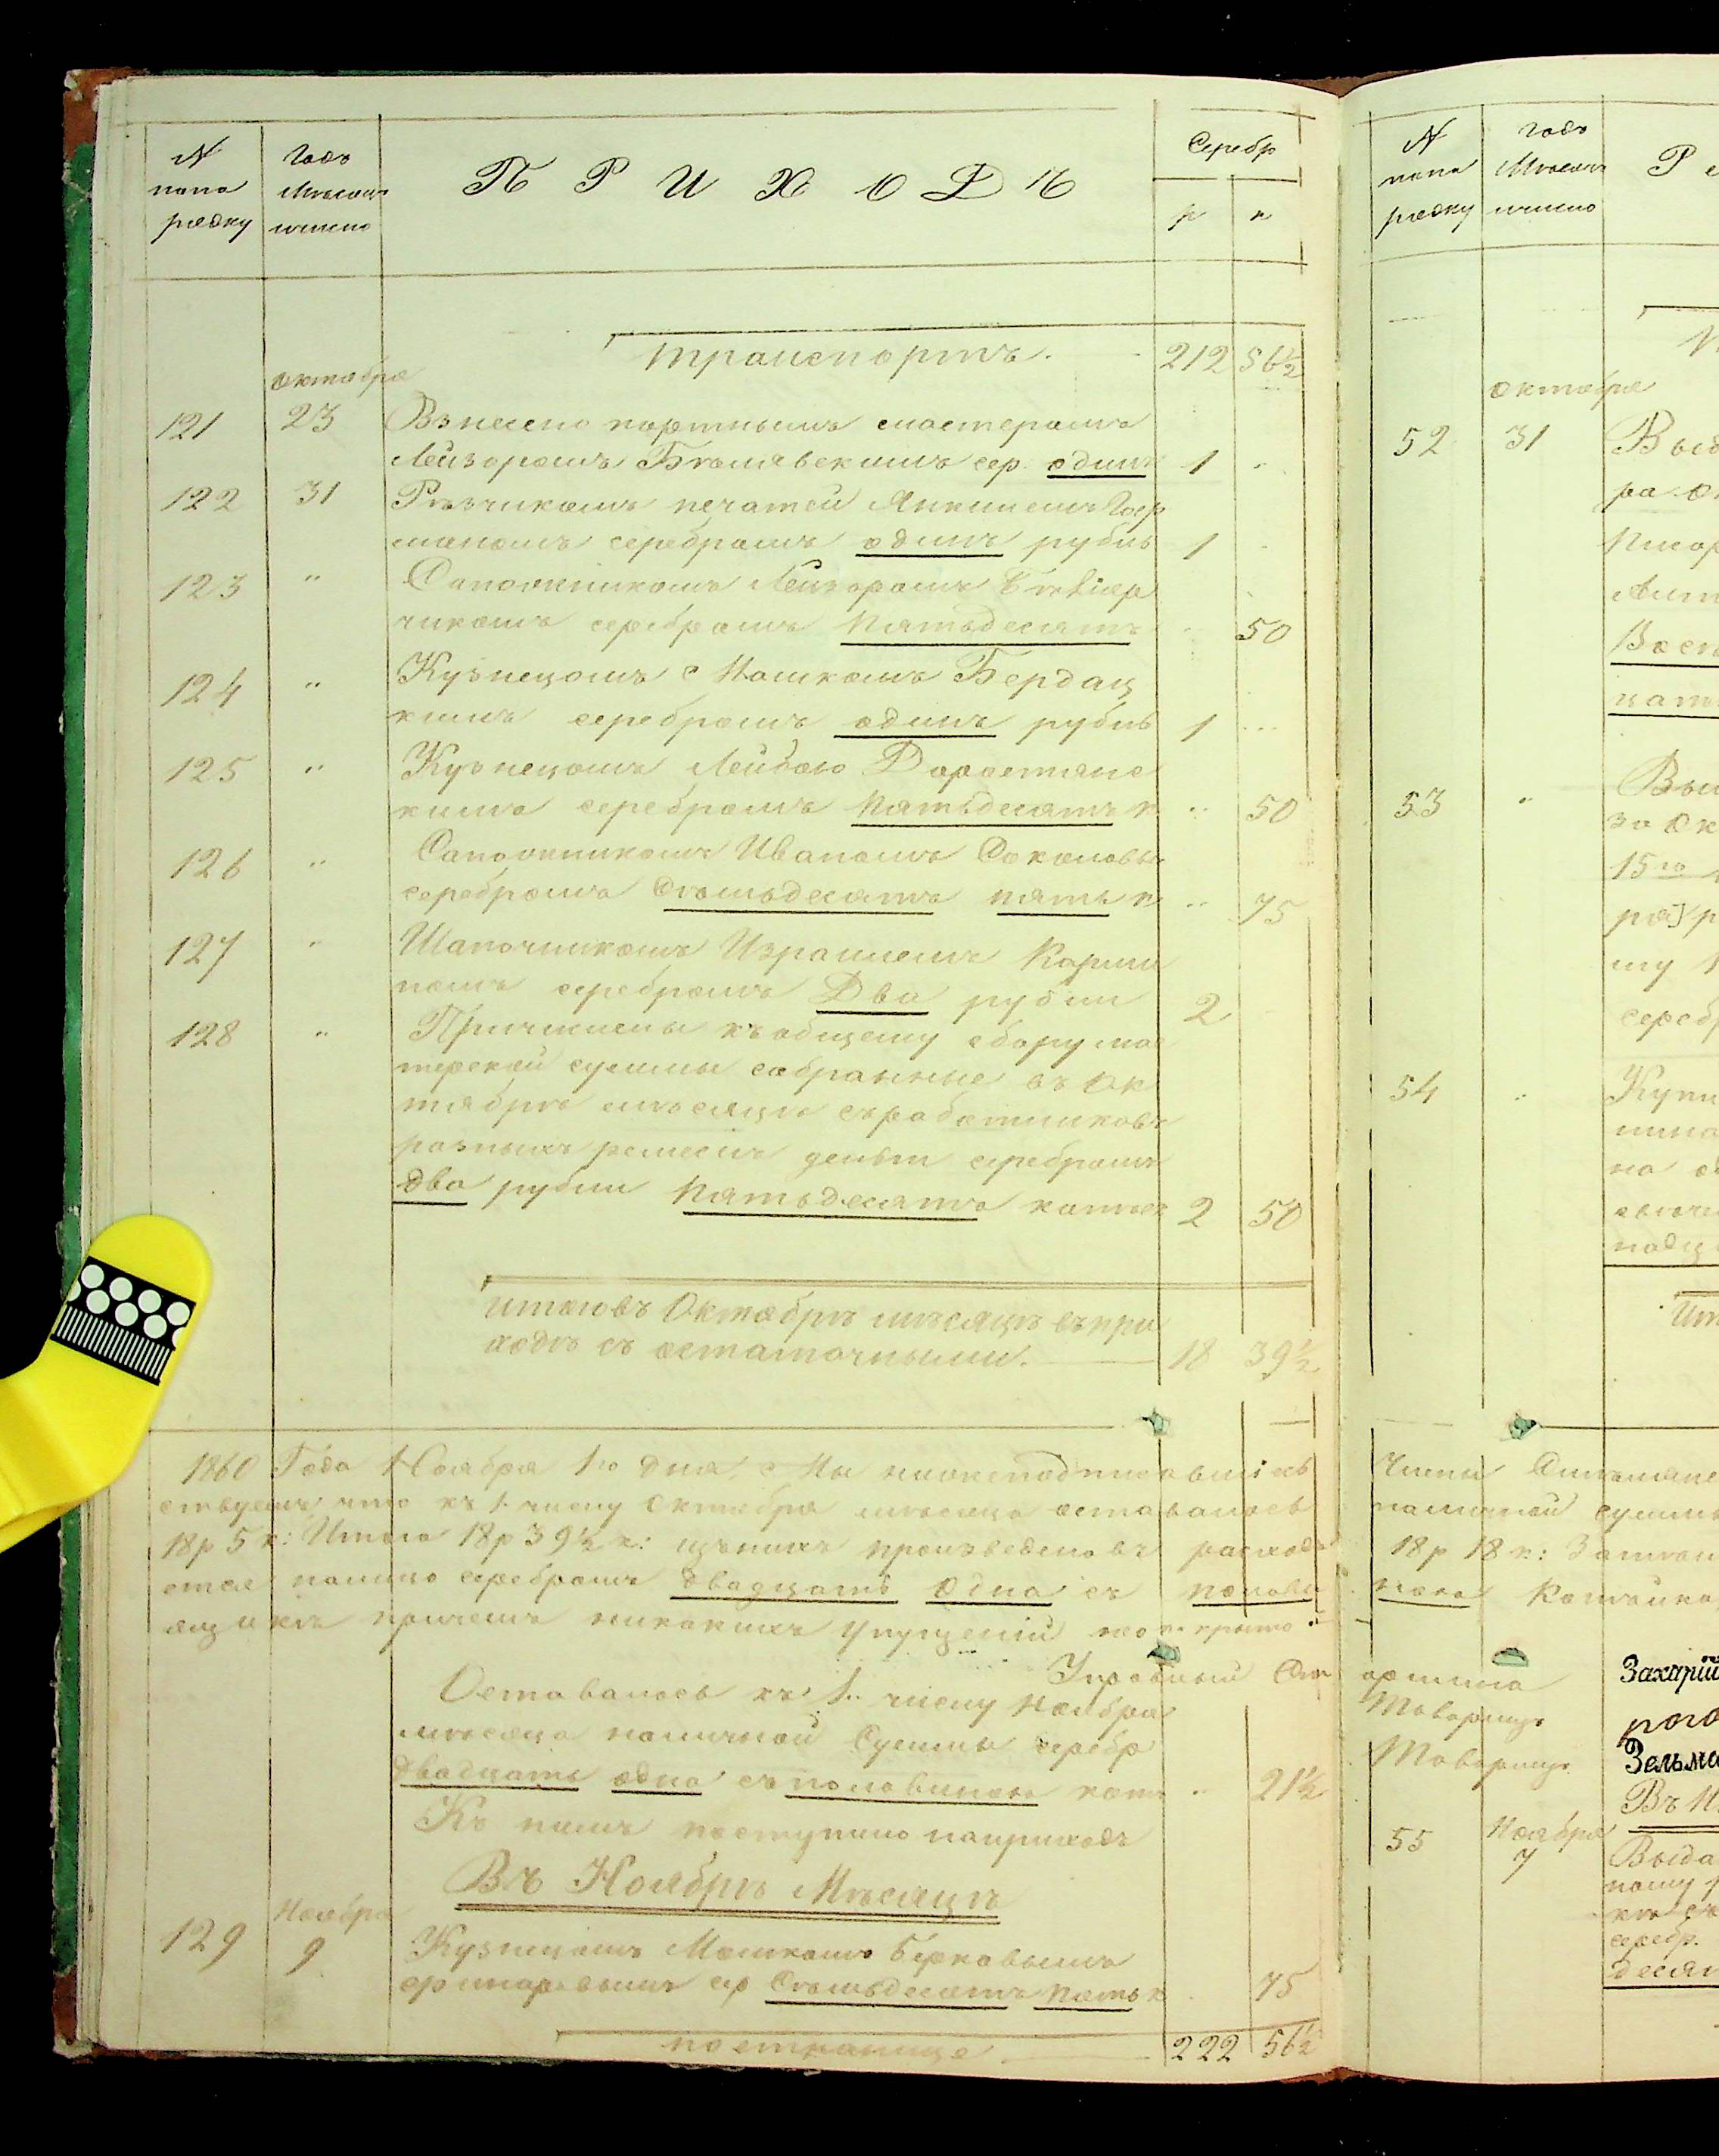 N
попо
рядку
Годъ
Месяцъ
и число
П Р И Х О Д Ъ
Серебр
р
к
Транспортъ. 212 56½
октября
121 23 Взнесено портнымъ мастеромъ
Лейзоромъ Бѣлявскимъ сер. одинъ 1
122 31 Рѣзчикомъ печатей Янкилемъ Гер
маномъ серебромъ одинъ рубль 1
123 " Сапожникомъ Лейзоромъ
чикомъ серебромъ пятьдесятъ 50
124 " Кузнецомъ Мошкомъ Бердац
кимъ серебромъ одинъ рубль 1
125 " Кузнецомъ Лейбою
кимъ серебромъ пятьдесятъ к 50
126 " Сапожникомъ Иваномъ Соколовы
серебромъ Семьдесятъ пять к 75
127 " Шапочникомъ Израилемъ Карли
номъ серебромъ Два рубли 2
128 " Причислены къ общему сбору мас
терской суммы собранные въ Ок
тябрѣ мѣсяцѣ съ работниковъ
разныхъ ремеслъ денегъ серебромъ
два рубли пятьдесятъ копѣек 2 50
итого въ Октябрѣ мѣсяцѣ въ при
ходѣ съ остаточными. 18 39½
1860 Года Ноября 1го дня. Мы нижеподписавшіесь
ствуемъ что къ 1. числу Октября мѣсяца оставалось
18р 5 к: Итого 18р 39½ к: изъ нихъ произведено въ расходъ
ется налицо серебромъ двадцать одна съ полови
ящикѣ причемъ никакихъ упущеній не открыто.
Управный Ста
Оставалось къ 1. числу Ноября
мѣсяца наличной Суммы серебр
двадцать одна съ половиною копѣ 21½
Къ нимъ поступило на приходъ
Въ Ноябрѣ Мѣсяцѣ
Ноября
129 9 Кузнецомъ Мошкомъ Берковымъ
сер Семьдесятъ пять к 75
по странице 222 56½
N
попо
рядку
Годъ
Месяцъ
и число
Р
октября
52 31 Выд
ра
Писар
53 " Выд
за Ок
15го
ря] р
му
серебр
54 " Купл
на
Ит
Числи
наличной суммы
18р 18 к: Затѣм
ною Копѣйка
ршина Захарій
Товарищъ
Товарищъ Зельма
Въ Н
Ноября
55 7 Выда
ному
серебр.
десят